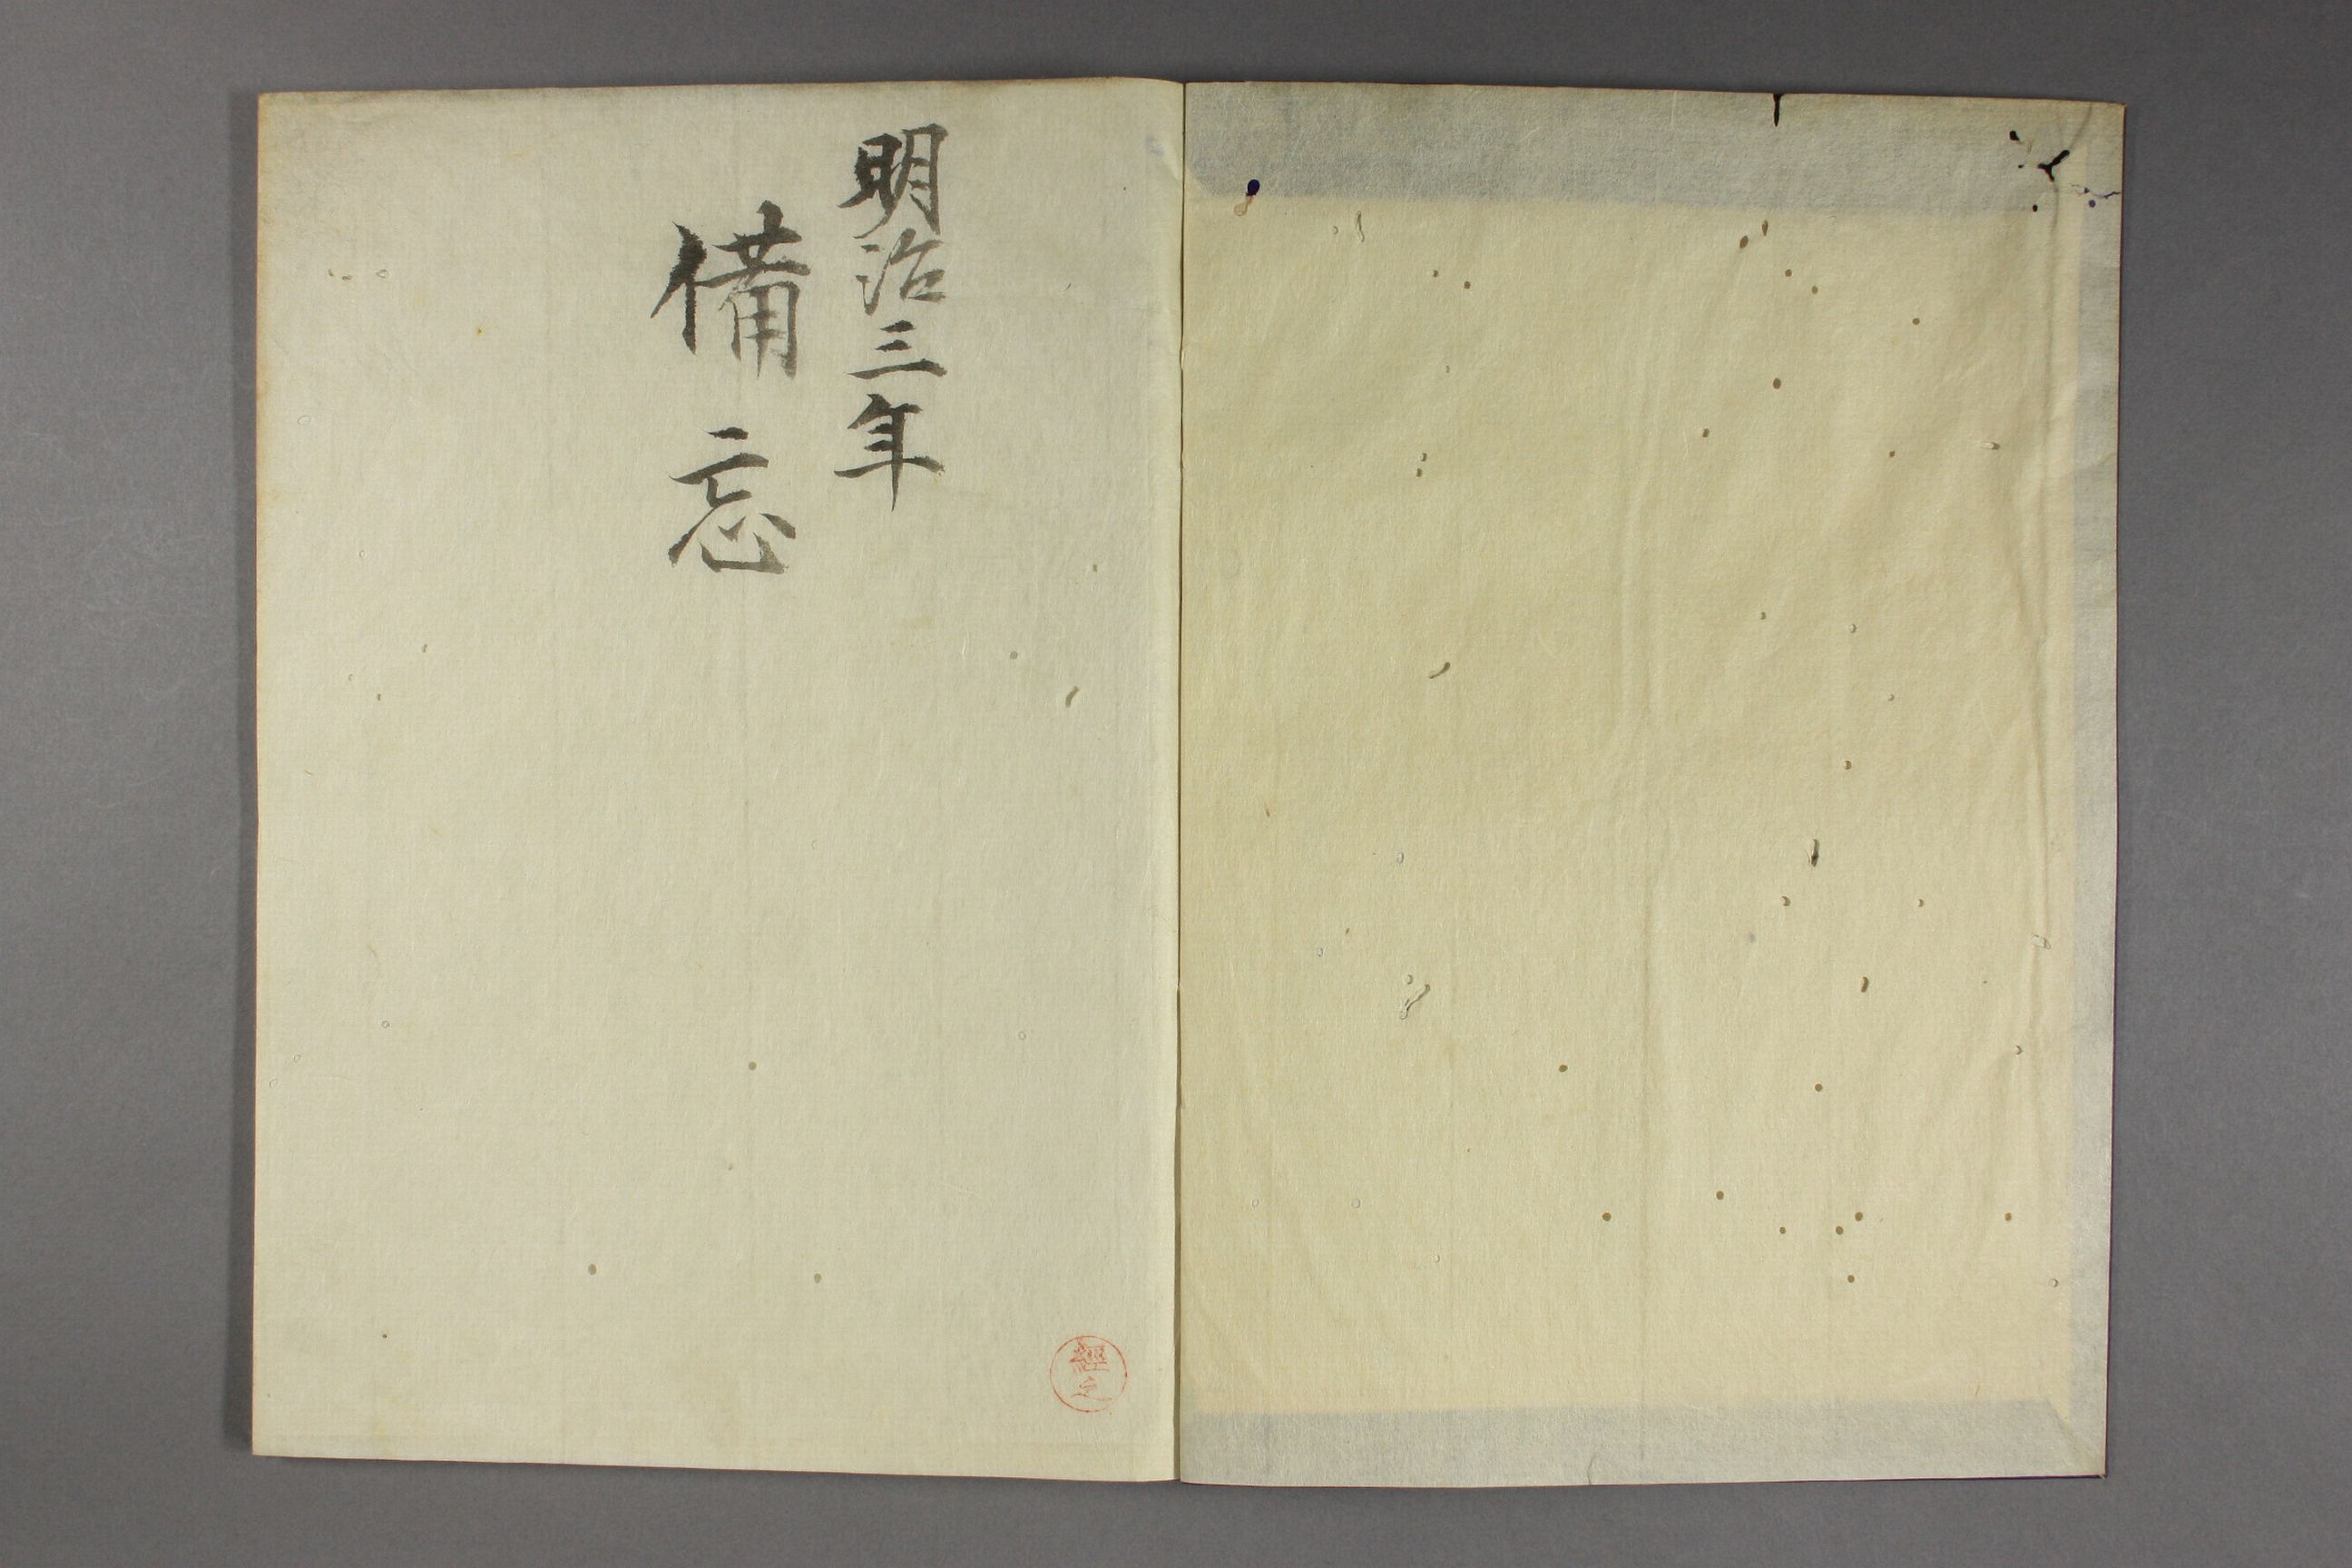 明治三年
備忘